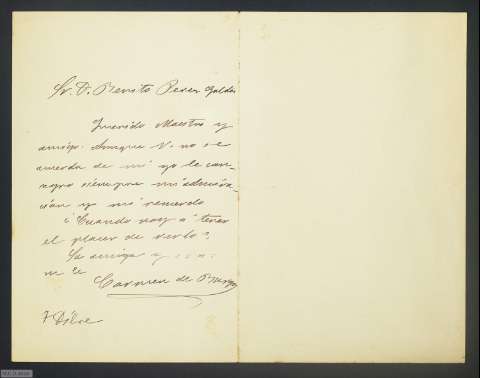 Sr. D. Benito Perez Galdós
Querido Maestro y
amigo. Aunque V. no se
acuerda de mi yo le con-
sagro siempre mi admira-
ción y mi recuerdo
¿Cuando voy a tener
el placer de verlo?
Su amiga y
Carmen de Burgos
7 Dbre